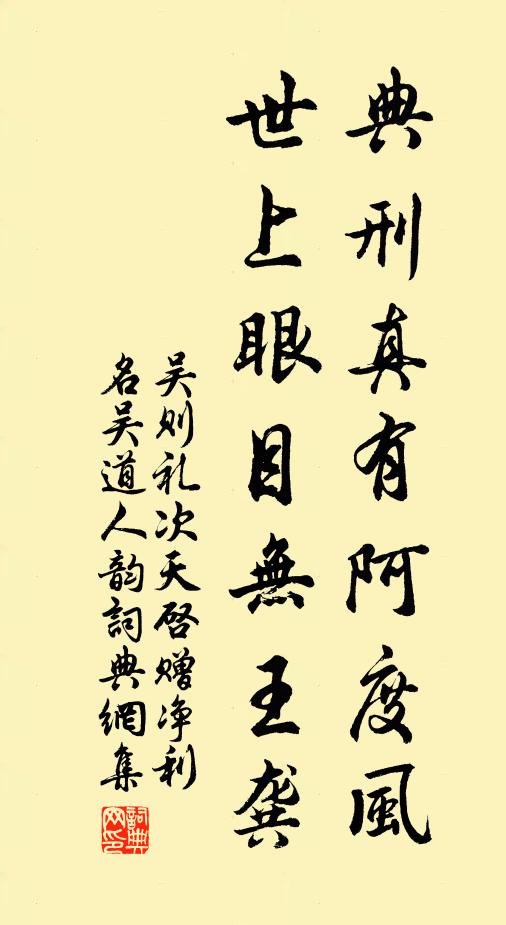 典刑真有阿度風
世上眼目無王龔
吴则礼次天启赠净利
名吴道人韵詞典網集
詞典网印